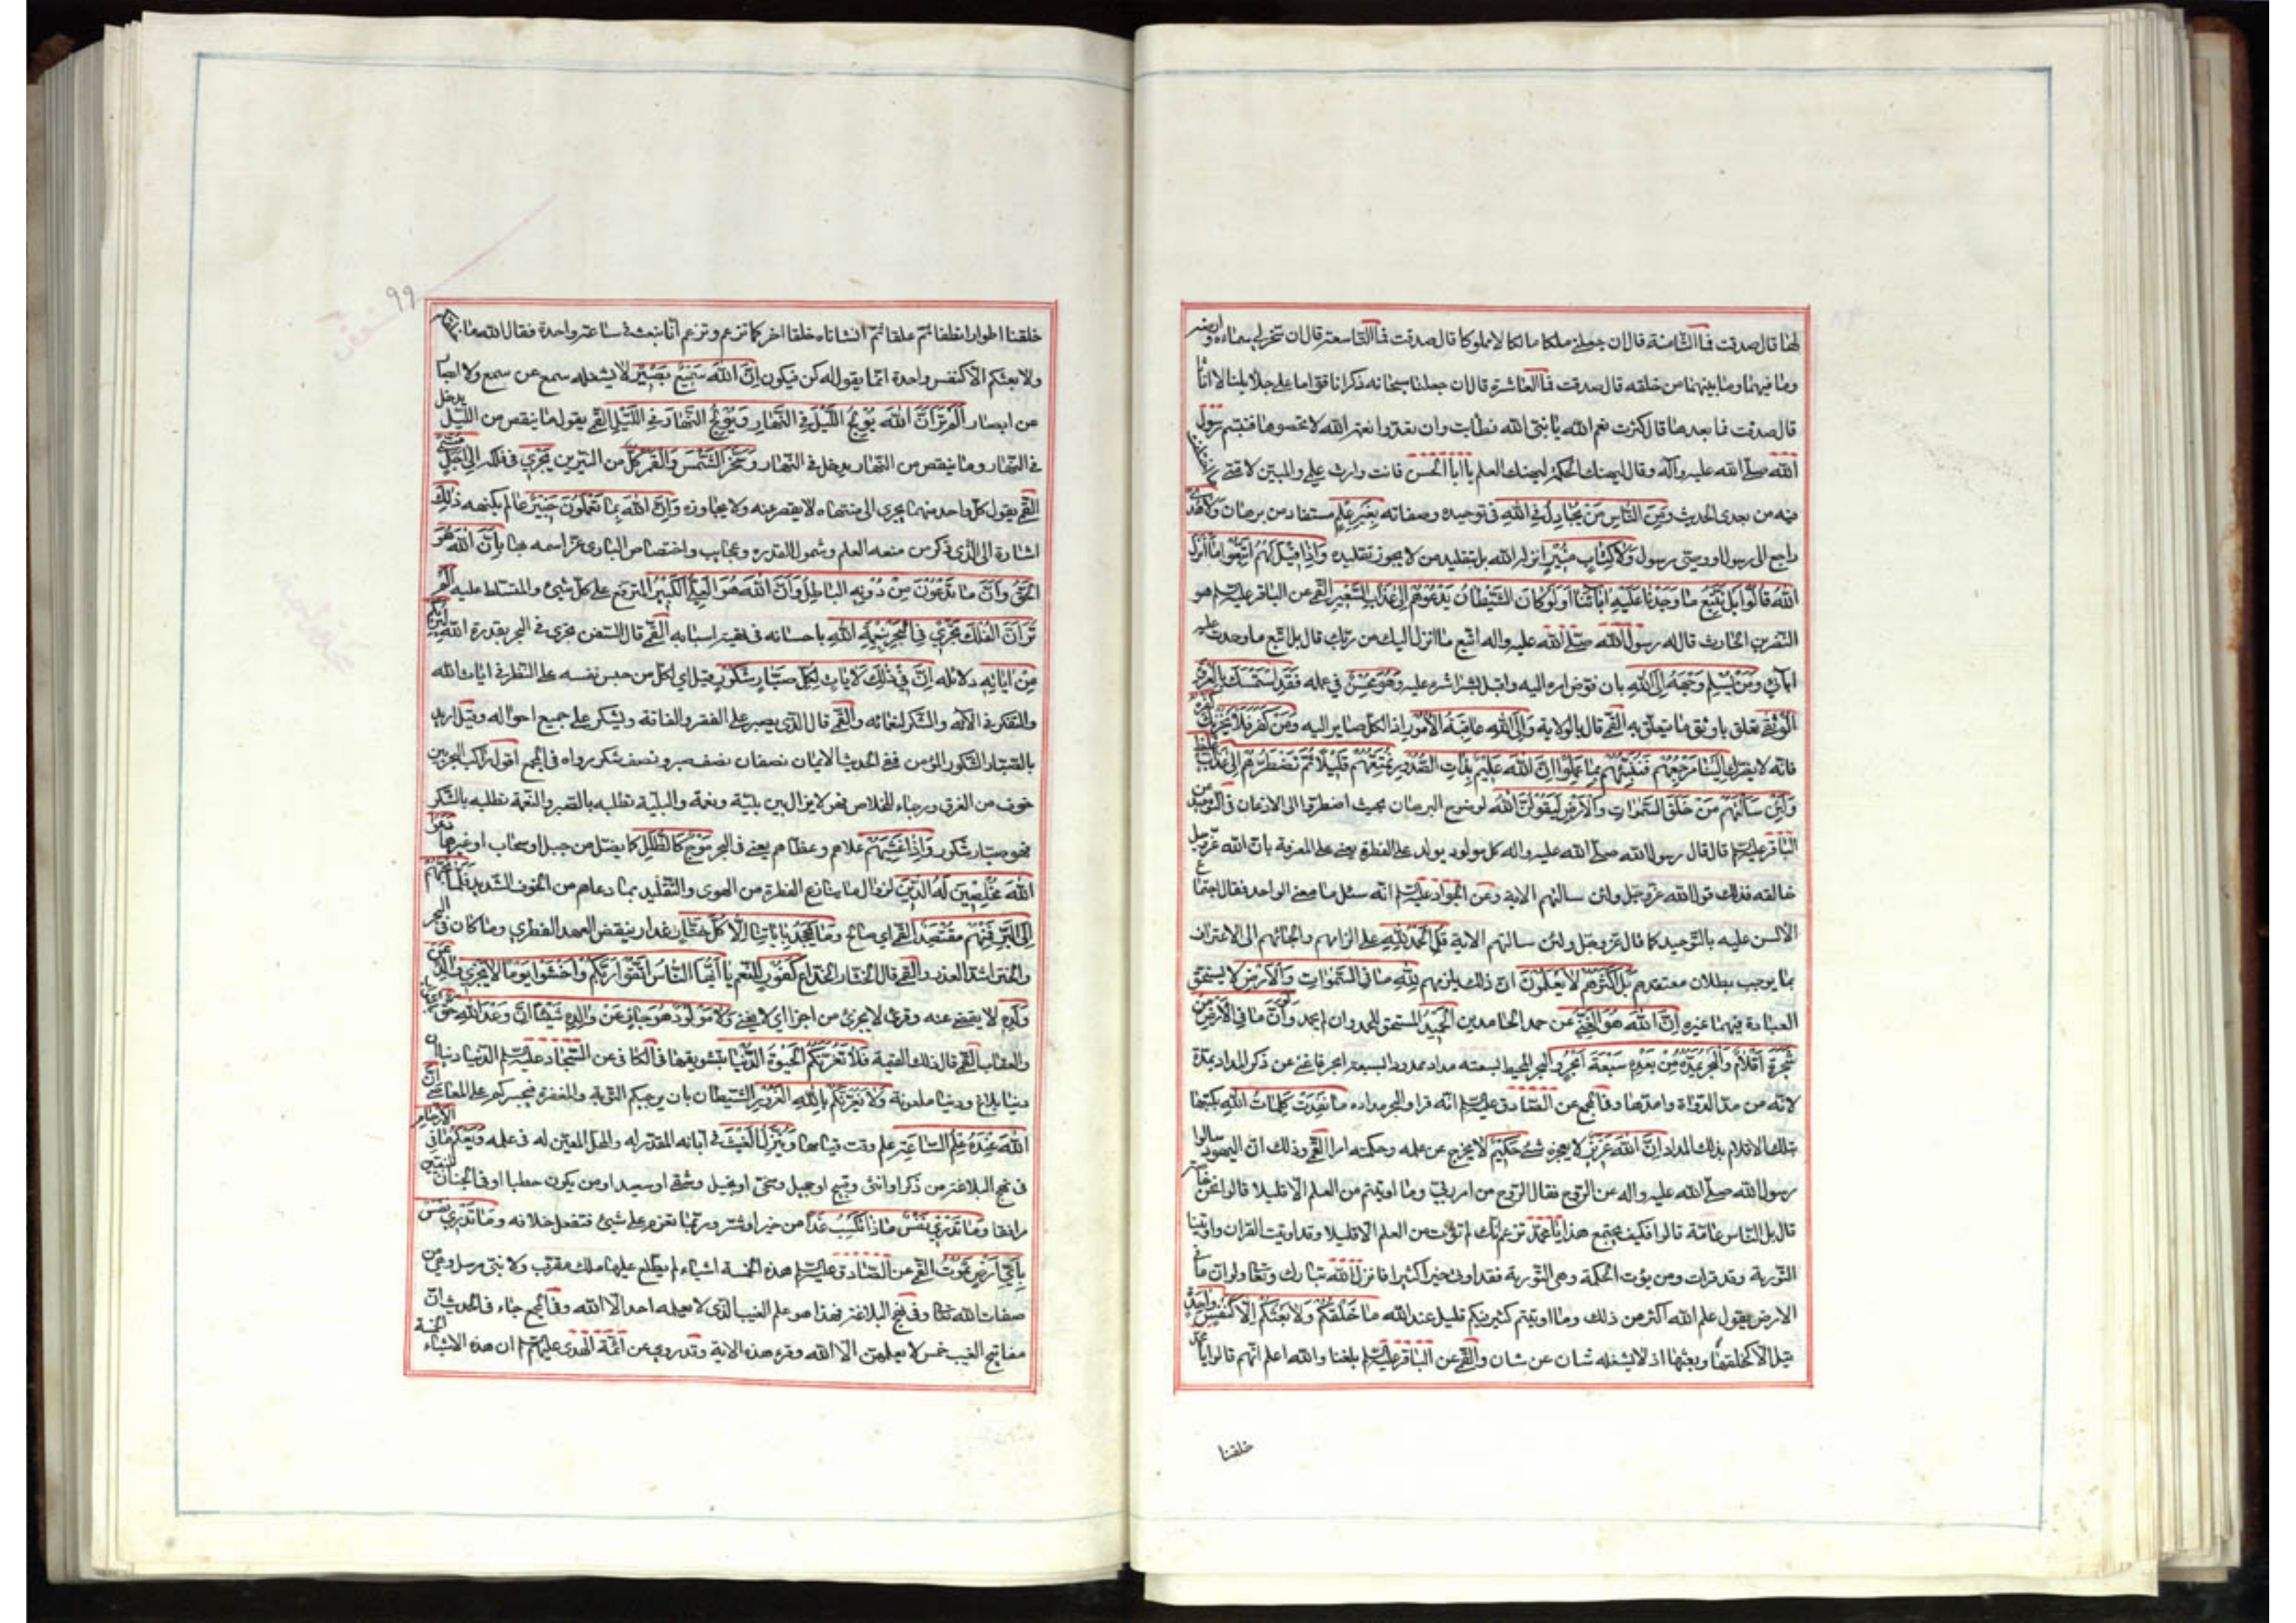 لها قال صدقت فما الثامنة قال ان جعلني ملكا مالكا لا مملوكا قال صدقت فما التاسعة قال ان سخر لي سماءه وارضه
وما فيهما وما بينهما من خلقه قال صدقت فما العاشرة قال ان جعلنا سبحانه ذكرانا قواما على حلايلنا لا اناثا
قال صدقت فما بعد هذا قال كثرت نعم الله يا نبي الله فطابت وان تعدوا نعمة الله لا تحصوها فتبسم رسول
الله صلى الله عليه وآله وقال ليهنك الحكمة ليهنك العلم يا ابا الحسن فانت وارث علمي والمبين لامتي ما اختلفت
فيه من بعدي الحديث ومن الناس من يجادل في الله في توحيده وصفاته بغير علم مستفاد من برهان ولا هدى
راجع الى رسول او وصي رسول ولا كتاب منير انزله الله بل بتقليد من لا يجوز تقليده واذا قيل لهم اتبعوا ما انزل
الله قالوا بل نتبع ما وجدنا عليه اباءنا اولو كان الشيطان يدعوهم الى عذاب السعير القمي عن الباقر عليه السلم هو
النضر بن الحارث قال له رسول الله صلى الله عليه واله اتبع ما انزل اليك من ربك قال بل اتبع ما وجدت عليه
ابائي ومن يسلم وجهه الى الله بان فوض امره اليه واقبل بشراشره عليه وهو محسن في عمله فقد استمسك بالعروة
الوثقى تعلق باوثق ما يتعلق به القمي قال بالولاية والى الله عاقبة الامور اذ الكل صاير اليه ومن كفر فلا يحزنك كفره
فانه لا يضرك الينا مرجعهم فننبئهم بما عملوا ان الله عليم بذات الصدور نمتعهم قليلا ثم نضطرهم الى عذاب غليظ
ولئن سالتهم من خلق السموات والارض ليقولن الله لوضوح البرهان بحيث اضطروا الى الاذعان في التوحيد عن
الباقر عليه السلم قال قال رسول الله صلى الله عليه واله كل مولود يولد على الفطرة يعني على المعرفة بان الله عز وجل
خالقه فذلك قول الله عز وجل ولئن سالتهم الاية وعن الجواد عليه السلم انه سئل ما معنى الواحد فقال اجتماع
الالسن عليه بالتوحيد كما قال عز وجل ولئن سالتهم الاية قل الحمد لله على الزامهم والجائهم الى الاعتراف
بما يوجب بطلان معتقدهم بل اكثرهم لا يعلمون ان ذلك يلزمهم لله ما في السموات والارض لا يستحق
العبادة فيهما غيره ان الله هو الغني عن حمد الحامدين الحميد المستحق للحمد وان لم يحمد ولو ان ما في الارض من
شجرة اقلام والبحر يمده من بعده سبعة ابحر والبحر المحيط بسعته مداد ممدود بسبعة ابحر فاغنى عن ذكر المداد بمده
لانه من مد الدواة وامدها وفي المجمع عن الصادق عليه السلم انه قرا والبحر مداده ما نفدت كلمات الله بكتبها
بتلك الاقلام بذلك المداد ان الله عزيز لا يعجزه شئ حكيم لا يخرج عن علمه وحكمته امر القمي وذلك ان اليهود سالوا
رسول الله صلى الله عليه واله عن الروح فقال الروح من امر ربي وما اوتيتم من العلم الا قليلا قالوا نحن خاصة
قال بل الناس عامة قالوا فكيف يجتمع هذا يا محمد تزعم انك لم تؤت من العلم الا قليلا وقد اوتيت القران واوتينا
التورية وقد قرات ومن يؤت الحكمة وهي التورية فقد اوتي خيرا كثيرا فانزل الله تبارك وتعالى ولو ان ما في
الارض يقول علم الله اكثر من ذلك وما اوتيتم كثير فيكم قليل عند الله ما خلقكم ولا بعثكم الا كنفس واحدة
قيل الا كخلقها وبعثها اذ لا يشغله شان عن شان والقمي عن الباقر عليه السلم بلغنا والله اعلم انهم قالوا يا محمد
خلقنا
99
خلقنا اطوارا نطفا ثم علقا ثم انشاناه خلقا اخر كما تزعم وتزعم انا نبعث في ساعة واحدة فقال الله ما خلقكم
ولا بعثكم الا كنفس واحدة انما يقول له كن فيكون ان الله سميع بصير لا يشغله سمع عن سمع ولا ابصار
عن ابصار الم تر ان الله يولج الليل في النهار ويولج النهار في الليل القمي يقول ما ينقص من الليل يدخل
في النهار وما ينقص من النهار يدخل في الليل وسخر الشمس والقمر كل من النيرين يجري في فلكه الى اجل مسمى
القمي يقول كل واحد منهما يجري الى منتهاه لا يقصر عنه ولا يجاوزه وان الله بما تعملون خبير عالم بكنهه ذلك
اشارة الى الذي ذكر من سعة العلم وشمول القدرة وعجايب واختصاص الباري عز اسمه بها بان الله هو
الحق وان ما تدعون من دونه الباطل وان الله هو العلي الكبير المترفع على كل شئ والمتسلط عليه الم
تر ان الفلك تجري في البحر بنعمة الله باحسانه في تهيئة اسبابه القمي قال السفن تجري في البحر بقدرة الله ليريكم
من اياته دلائله ان في ذلك لايات لكل صبار شكور قيل اي لكل من حبس نفسه على النظر في ايات الله
والتفكر في الائه والشكر لنعمائه والقمي قال الذي يصبر على الفقر والفاقة ويشكر على جميع احواله وقيل اريد
بالصبار الشكور المؤمن ففي الحديث الايمان نصفان نصف صبر ونصف شكر رواه في المجمع اقول راكب البحر بين
خوف من الغرق ورجاء للخلاص فهو لا يزال بين بلية ونعمة والبلية تطلبه بالصبر والنعمة تطلبه بالشكر
فهو صبار شكور واذا غشيهم علاهم وغطاهم يعني في البحر موج كالظلل كما يضل من جبل او سحاب او غيرها دعوا
الله مخلصين له الدين لزوال ما ينازع الفطرة من الهوى والتقليد بما دعاهم من الخوف الشديد فلما نجيهم
الى البر فمنهم مقتصد القمي اي صالح وما يجحد باياتنا الا كل ختار غدار ينقض العهد الفطري وما كان في البحر
والختر اشد الغدر والقمي قال الختار الخداع كفور للنعم يا ايها الناس اتقوا ربكم واخشوا يوما لا يجزي والد عن
ولده لا يقضي عنه وقرئ لا يجزئ من اجزأ اي لا يغني ولا مولود هو جاز عن والده شيئا ان وعد الله حق
والعقاب القمي قال ذلك القيمة فلا تغرنكم الحيوة الدنيا بتشويقها في الكافي عن السجاد عليه السلم الدنيا دنياان
دنيا بلاغ ودنيا ملعونة ولا يغرنكم بالله الغرور الشيطان بان يرجيكم التوبة والمغفرة فيجسركم على المعاصي ان
الله عنده علم الساعة علم وقت قيامها وينزل الغيث في ابانه المقدر له والمحل المعين له في علمه ويعلم ما في الارحام
في نهج البلاغة من ذكر او انثى وقبيح او جميل وسخي او بخيل وشقي او سعيد او من يكون حطبا او في الجنان للنبيين
مرافقا وما تدري نفس ماذا تكسب غدا من خير او شر وربما تعزم على شئ فتفعل خلافه وما تدري نفس
باي ارض تموت القمي عن الصادق عليه السلم هذه الخمسة اشياء لم يطلع عليها ملك مقرب ولا نبي مرسل وهي من
صفات الله تعالى وفي نهج البلاغة فهذا هو علم الغيب الذي لا يعلمه احد الا الله وفي المجمع جاء في الحديث ان
مفاتيح الغيب خمس لا يعلمهن الا الله وقرء هذه الاية وقد روي عن ائمة الهدى عليهم السلم ان هذه الاشياء الخمسة